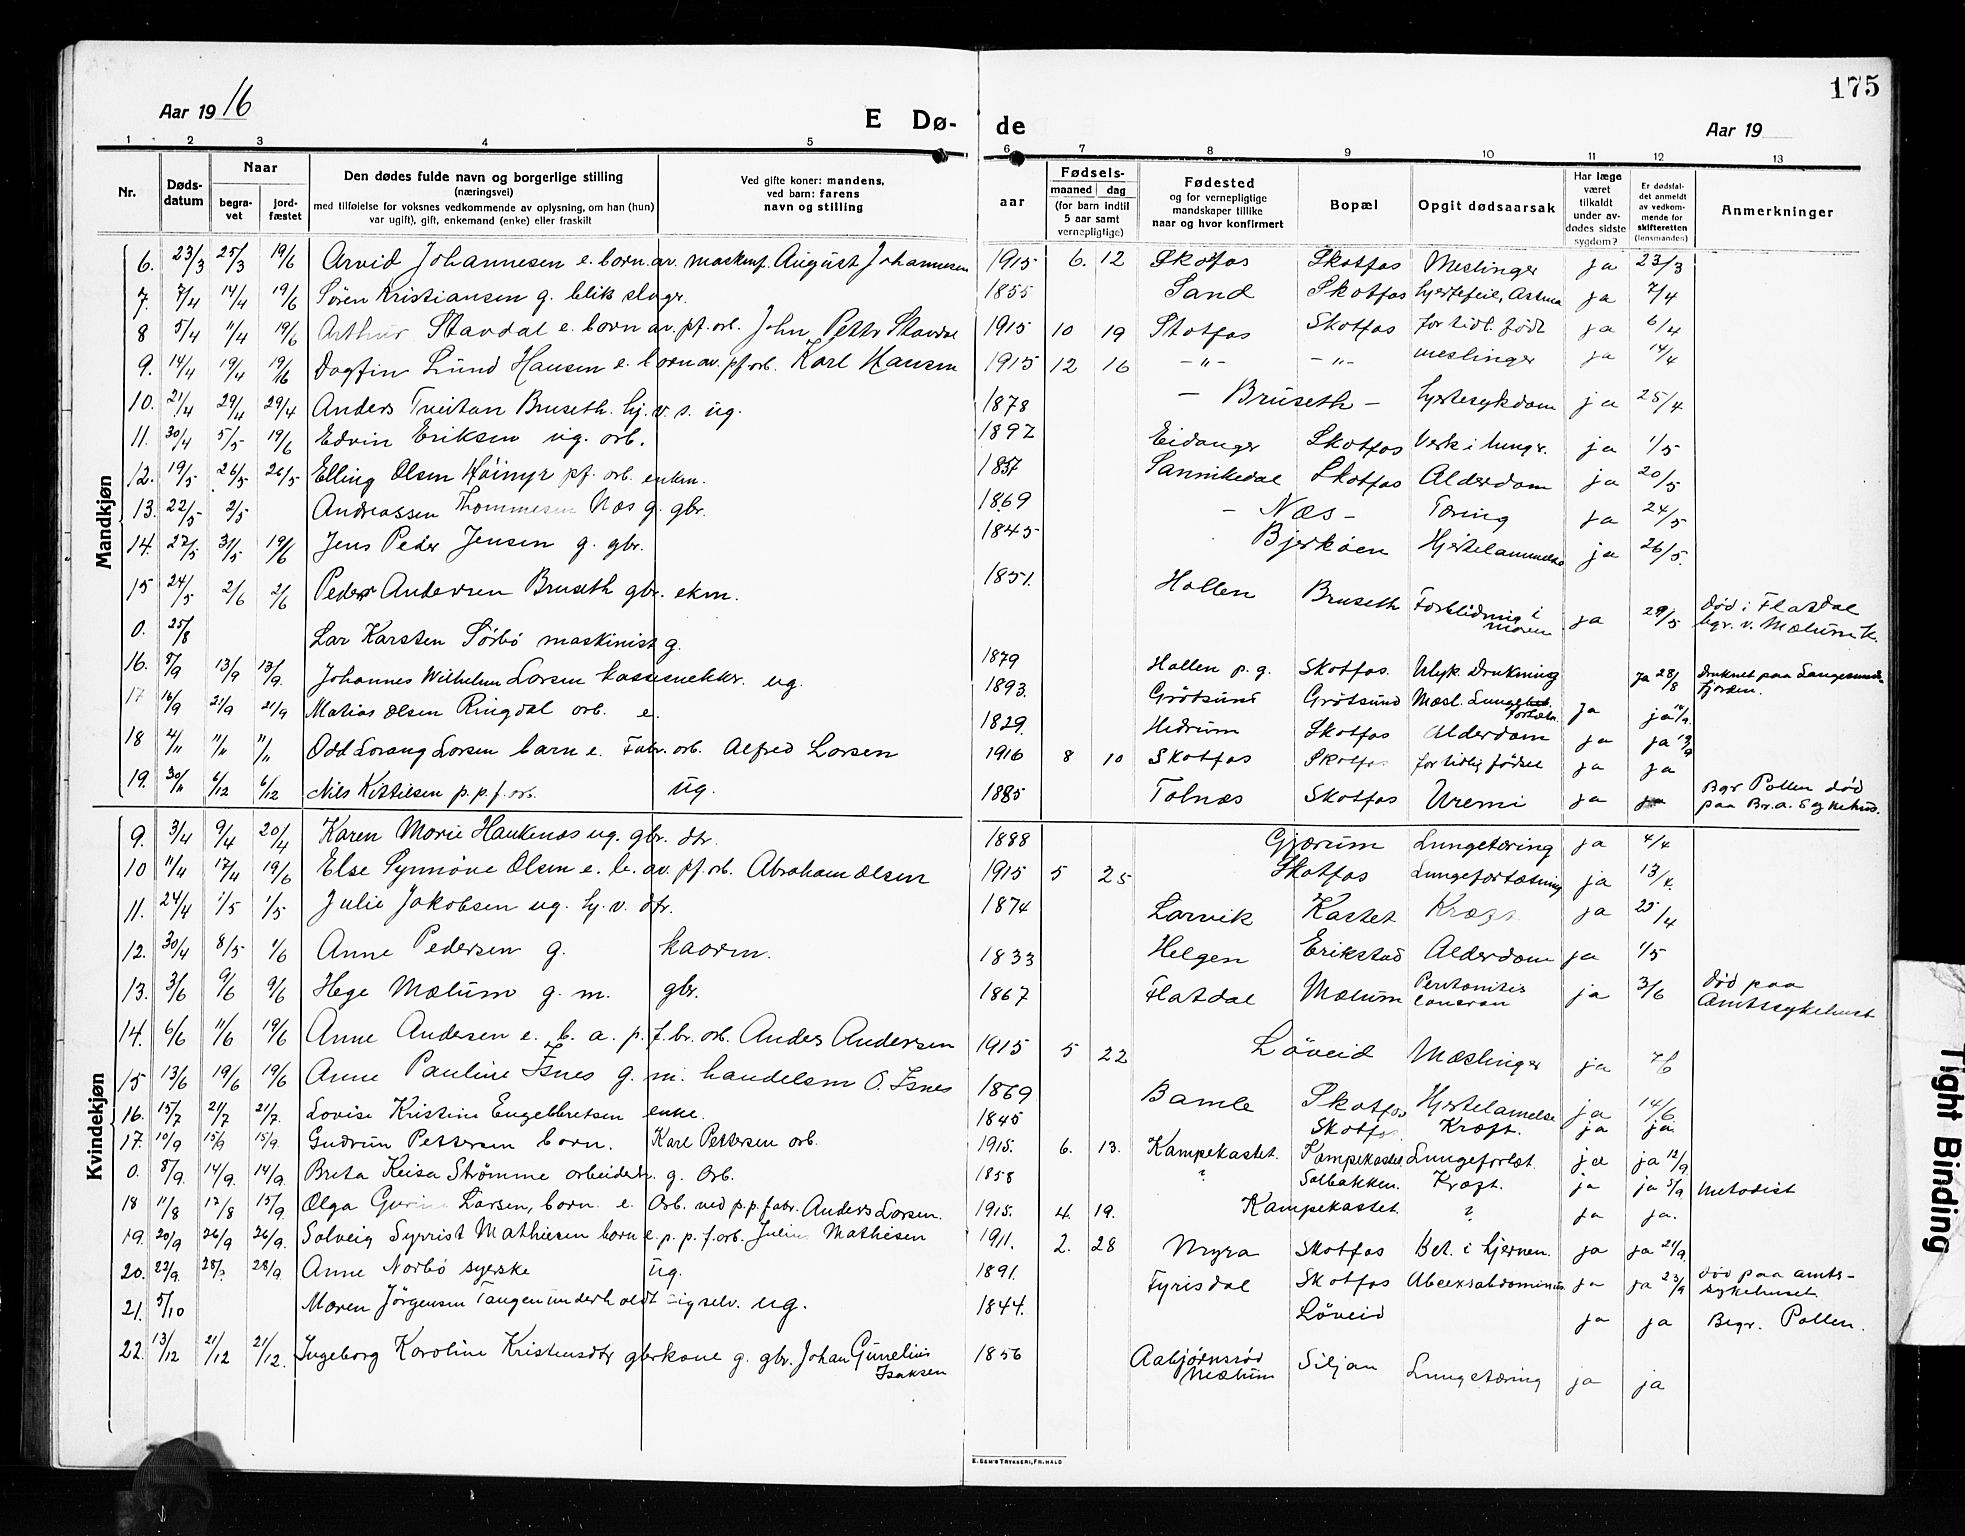 175
Aar 19 16
E Dø-
de
Aar 19
1 2 3 4 5 6 7 8 9 10 11 12 13
Nr.
Døds-
datum
Naar
begra-
vet
jord-
fæstet
Den dødes fulde navn og borgerlige stilling
(næringsvei)
med tilføielse for voksnes vedkommende av oplysning, om han (hun)
var ugift), gift, enkemand (enke) eller fraskilt
Ved gifte koner: mandens,
ved barn: farens
navn og stilling
aar
Fødsels-
maaned dag
(for barn indtil
5 aar samt
vernepligtige)
Fødested
og for vernepligtige
mandskaper tillike
naar og hvor konfirmert
Bopæl
Opgit dødsaarsak
Har læge
været
tilkaldt
under av-
dødes sidste
sygdom?
Er dødsfal-
det anmeldt
av vedkom-
mende for
skifteretten
(lensmanden)
Anmerkninger
Mandkjøn
6. 23/3 25/3 19/6 Arvid Johannesen e. born av maskinf. August Johannesen 1915 6. 12 Skotfos Skotfos Meslinger ja 23/3
7. 7/4 14/4 19/6 Søren Kristiansen g. blikslagr. 1855 Sand Skotfos hjertefeil, Astma ja 7/4
8 5/4 11/4 19/6 Arthur Stavdal e. born av pf. orb. John Petter Stavdal 1915 10 19 Skotfos Skotfos for tidl. født ja 6/4
9. 14/4 19/4 19/16 Dagfin Lund Hansen e. born av. pf. orb. Karl Hansen 1915 12 16 -"- -"- meslinger ja 14/4
10. 21/4 29/4 29/4 Anders Tveitan Bruseth hj. v. s. ug. 1878 - Bruseth - hjertesykdom ja 25/4
11. 30/4 5/5 19/6 Edvin Eriksen ug. orb. 1897 Eidanger Skotfos Verk i lungr. ja 1/5
12. 19/5 26/5 26/5 Elling Olsen Høimyr pf. orb. enkm. 1837 Sannikedal Skotfos Alderdom ja 20/5
13. 22/5 2/5 Andreassen Thommesen Næs g. gbr. 1869 - Næs - Tæring ja 24/5
14. 22/5 31/5 19/6 Jens Peder Jensen g. gbr. 1845 Bjerkøen Hjertelammelse ja 26/5.
15 24/5 2/6 2/6 Peder Andersen Bruseth gbr. ekm. 1851. Hollen Bruseth Forblødning i maven ja 29/5 død i Flatdal
bgr. v. Mælum k.
0. 25/8 Lar Karsten Sørbø maskinist g. 1879 Hollen p. g. Skotfos. Ulyk. Drukning ja 28/8 Druknet paa Langesunds-
fjorden.
16. 8/9 13/9 13/9. Johannes Wilhelm Larsen kassesnekkr. ug. 1893. Grøtsund Grøtsund Mæsl. Lunge ja ja
17 16/9 21/9 21/9 Matias Olsen Ringdal orb. e. 1829. Hedrum Skotfos Alderdom ja ja 19/9
18 4/11 11/11 11/11 Odd Lorang Larsen barn e. Fabr. orb. Alfred Larsen 1916 8 10 Skotfos Skotfos for tidlig fødsel ja ja
19. 30/11 6/12 6/12 Nils Kittilsen p. p. f. orb. ug. 1885 Tolnæs Skotfos Uremi ja ja Bgr Pollen død
paa Br.a. Sykehus.
Kvindekjøn
9. 3/4 9/4 20/4 Karen Marie Haukenæs ug. gbr. dtr. 1888 Gjærum Lungetæring ja 4/4
10 11/4 17/4 19/6 Else Synnøve Olsen e. b. av. pf. orb. Abraham Olsen 1915 5 25 Skotfos Lungefortætning ja 13/4.
11. 24/4 1/5 1/5 Julie Jakobsen ug. hj. v. dtr. 1874 Larvik Kastet Kræft ja 25/4
12. 30/4 8/5 1/6 Anne Pedersen g. kaarm. 1833 Helgen Erikstad Alderdom ja 1/5
13. 3/6 9/6 9/6 Hege Mælum g. m. gbr. 1867 Flatdal Mælum Peritonitis ja 3/6 død paa
Amtssykehuset
14. 6/6 11/6 19/6 Anne Andesen e. b. a. p. f. br. orb. Andes Andersen 1915 5 22 Løveid Mæslinger ja 7/6
15 13/6 19/6 19/6 Anne Pauline Isnes g. m. handelsm O. Isnes 1869 Bamle Skotfos Hjertelamelse ja 14/6.
16. 15/7 21/7 21/7. Lovise Kristine Engebbretsen enke. 1845 Skotfos Kræft. ja ja.
17. 10/9 15/9 15/9. Gudrun Pettersen born. Karl Pettersen orb. 1915. 6. 13. Kampekastet. Kampekastet Lungefortæt. ja ja 12/9
0. 8/9. 14/9. 14/9. Brita Keisa Strømme arbeidedr. g. Orb. 1858 ? Solbakken. Kræft. ja ja 5/9 Metodist
18 11/8 17/8 15/9. Olga Larsen, born. e. Orb. ved p.p. fabr. Anders Larsen. 1915. 4. 19. Kampekastet. ? ja ja.
19. 20/9 26/9 26/9. Solveig Syrrist Mathiesen born e. p. p. f. orb. Julius Mathiesen 1911. 2. 28 Myra Skotfos Bet. i hjernen. ja ja 21/9.
20. 22/9. 28/9 28/9 Anne Norbø syerske ug. 1891. Fyrisdal Skotfos Abcexabdominus ja ja 23/9 død paa amts-
sykehuset
21. 5/10 Maren Jørgensen Tangen underholdt sig selv. ug. 1844. Løveid ja ja Begr. Pollen.
22. 13/12 21/12 21/12. Ingeborg Karoline Kristensdtr gbrkone g. gbr. Johan Gunelius Isaksen 1856 Aabjørnsrød Mælum Siljan Lungetæring ja ja
E. SEM'S TRYKKERI, FR.HALD
Tight Binding